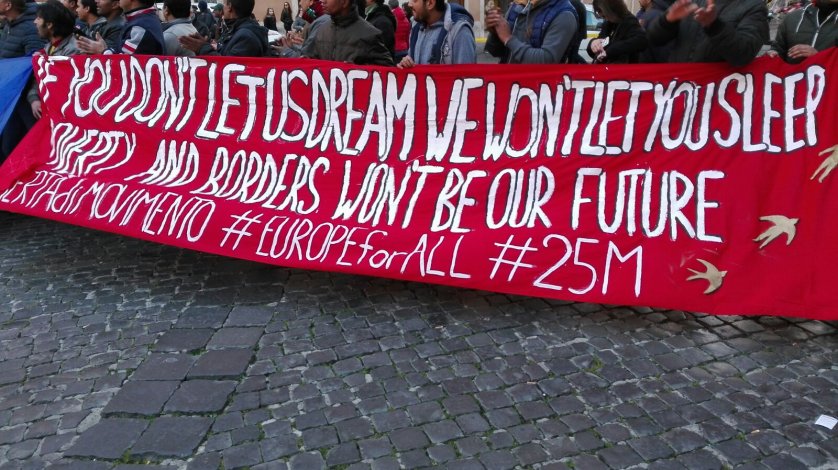 IF YOU DON'T LET US DREAM WE WON'T LET YOU SLEEP
POVERTY AND BORDERS WON'T BE OUR FUTURE
ERTÀdiMOVIMENTO #EUROPEforALL #25M